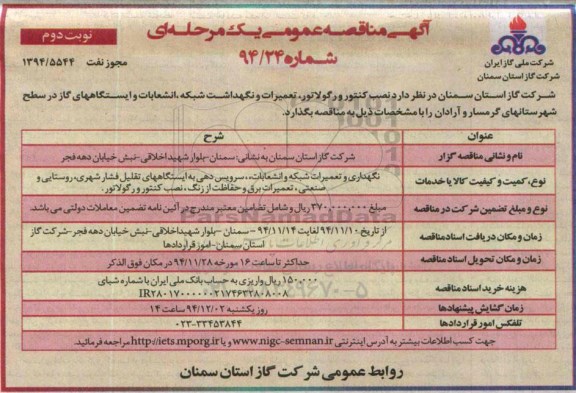 آگهی مناقصه عمومی یک مرحله‌ای
شماره ۹۴/۲۴
نوبت دوم
مجوز نفت ۱۳۹۴/۵۵۴۴
شرکت ملی گاز ایران
شرکت گاز استان سمنان
شرکت گاز استان سمنان در نظر دارد نصب کنتور و رگولاتور، تعمیرات و نگهداشت شبکه، انشعابات و ایستگاههای گاز در سطح
شهرستانهای گرمسار و آرادان را با مشخصات ذیل به مناقصه بگذارد.
عنوان شرح
نام و نشانی مناقصه گزار شرکت گاز استان سمنان به نشانی: سمنان-بلوار شهید اخلاقی-نبش خیابان دهه فجر
نوع، کمیت و کیفیت کالا یا خدمات نگهداری و تعمیرات شبکه و انشعابات، سرویس دهی به ایستگاههای تقلیل فشار شهری، روستایی و
صنعتی، تعمیرات برق و حفاظت از زنگ، نصب کنتور و رگولاتور.
نوع و مبلغ تضمین شرکت در مناقصه مبلغ ۳۷۰,۰۰۰,۰۰۰ ریال و شامل تضامین معتبر مندرج در آئین نامه تضمین معاملات دولتی می باشد.
زمان و مکان دریافت اسناد مناقصه از تاریخ ۹۴/۱۱/۱۰ لغایت ۹۴/۱۱/۱۴ - سمنان-بلوار شهید اخلاقی-نبش خیابان دهه فجر-شرکت گاز
استان سمنان-امور قراردادها
زمان و مکان تحویل اسناد مناقصه حداکثر تا ساعت ۱۶ مورخه ۹۴/۱۱/۲۸ در مکان فوق الذکر
هزینه خرید اسناد مناقصه ۱۵۰,۰۰۰ ریال واریزی به حساب بانک ملی ایران با شماره شبای
زمان گشایش پیشنهادها روز یکشنبه ۹۴/۱۲/۰۲ ساعت ۱۴
تلفکس امور قراردادها ۰۲۳-۳۳۴۵۳۸۴۴
جهت کسب اطلاعات بیشتر به آدرس اینترنتی www.nigc-semnan.ir و یا http://iets.mporg.ir مراجعه فرمائید.
روابط عمومی شرکت گاز استان سمنان